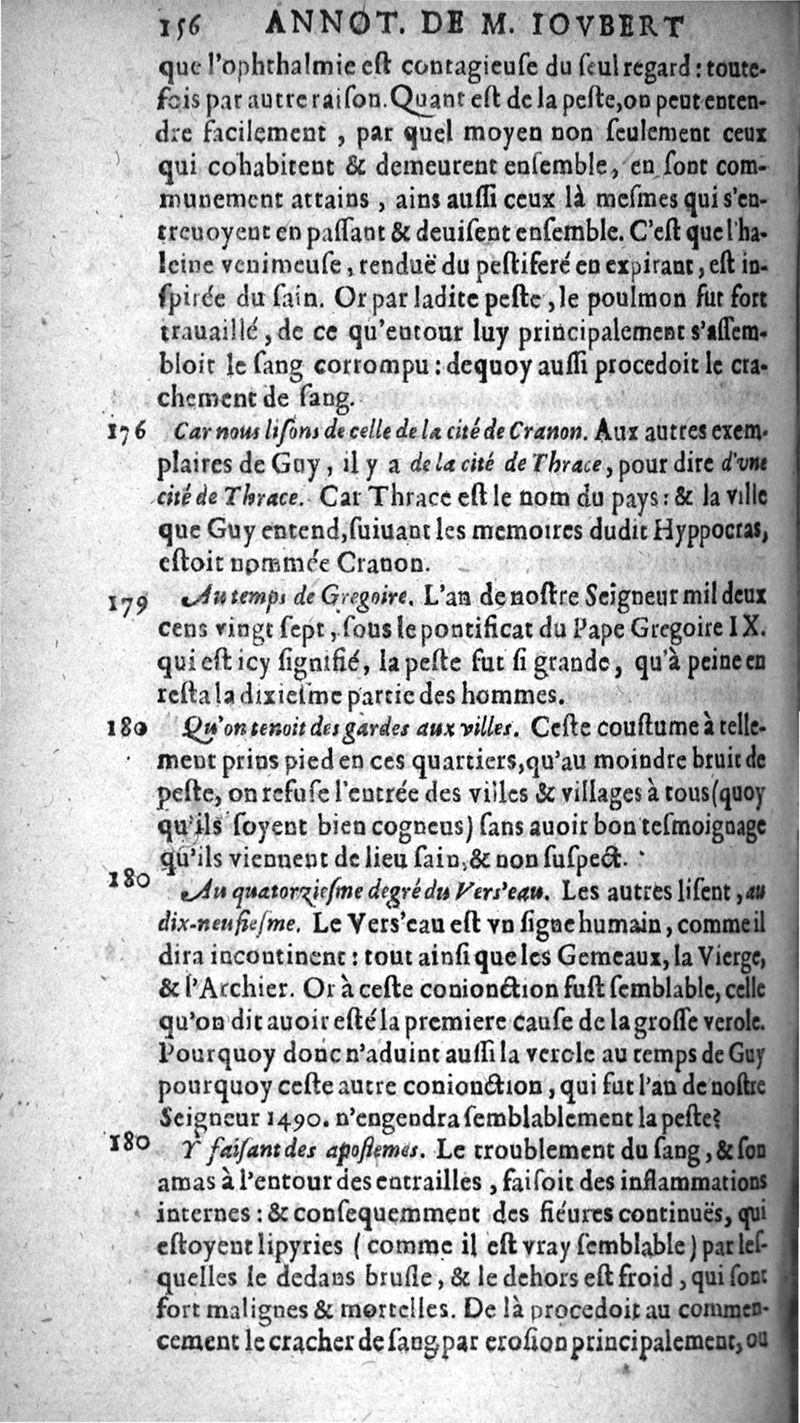 156 ANNOT. DE M. IOVBERT
que l'ophthalmie eſt contagieuſe du ſeul regard : toute-
fois par autre raiſon. Quant eſt de la peſte, on peut enten-
dre facilement , par quel moyen non ſeulement ceux
qui cohabitent & demeurent enſemble, en ſont com-
munement attains , ains auſſi ceux là meſmes qui s'en-
treuoyent en paſſant & deuiſent enſemble. C'eſt que l'ha-
leine venimeuſe, renduë du peſtiferé en expirant, eſt in-
ſpirée du ſain. Or par ladite peſte, le poulmon fut fort
trauaillé, de ce qu'entour luy principalement s'aſſem-
bloit le ſang corrompu : dequoy auſſi procedoit le cra-
chement de ſang.
176 Car nous liſons de celle de la cité de Cranon. Aux autres exem-
plaires de Guy , il y a de la cité de Thrace, pour dire d'vne
cité de Thrace. Car Thrace eſt le nom du pays : & la ville
que Guy entend, ſuiuant les memoires dudit Hyppocras,
eſtoit nommée Cranon.
179 Au temps de Gregoire. L'an de noſtre Seigneur mil deux
cens vingt ſept, ſous le pontificat du Pape Gregoire IX.
qui eſt icy ſignifié, la peſte fut ſi grande, qu'à peine en
reſta la dixieſme partie des hommes.
180 Qu'on tenoit des gardes aux villes. Ceſte couſtume à telle-
ment prins pied en ces quartiers, qu'au moindre bruit de
peſte, on refuſe l'entrée des villes & villages à tous (quoy
qu'ils ſoyent bien cogneus) ſans auoir bon teſmoignage
qu'ils viennent de lieu ſain, & non ſuſpect.
180 Au quatorzieſme degré du Vers'eau. Les autres liſent, au
dix-neufieſme. Le Vers'eau eſt vn ſigne humain, comme il
dira incontinent : tout ainſi que les Gemeaux, la Vierge,
& l'Archier. Or à ceſte conionction fuſt ſemblable, celle
qu'on dit auoir eſté la premiere cauſe de la groſſe verole.
Pourquoy donc n'aduint auſſi la verole au temps de Guy
pourquoy ceſte autre conionction, qui fut l'an de noſtre
Seigneur 1490. n'engendra ſemblablement la peſte?
180 Y faiſant des apoſtemes. Le troublement du ſang, & ſon
amas à l'entour des entrailles, faiſoit des inflammations
internes : & conſequemment des fiéures continuës, qui
eſtoyent lipyries ( comme il eſt vray ſemblable) par leſ-
quelles le dedans bruſle, & le dehors eſt froid, qui ſont
fort malignes & mortelles. De là procedoit au commen-
cement le cracher de ſang, par eroſion principalement, ou